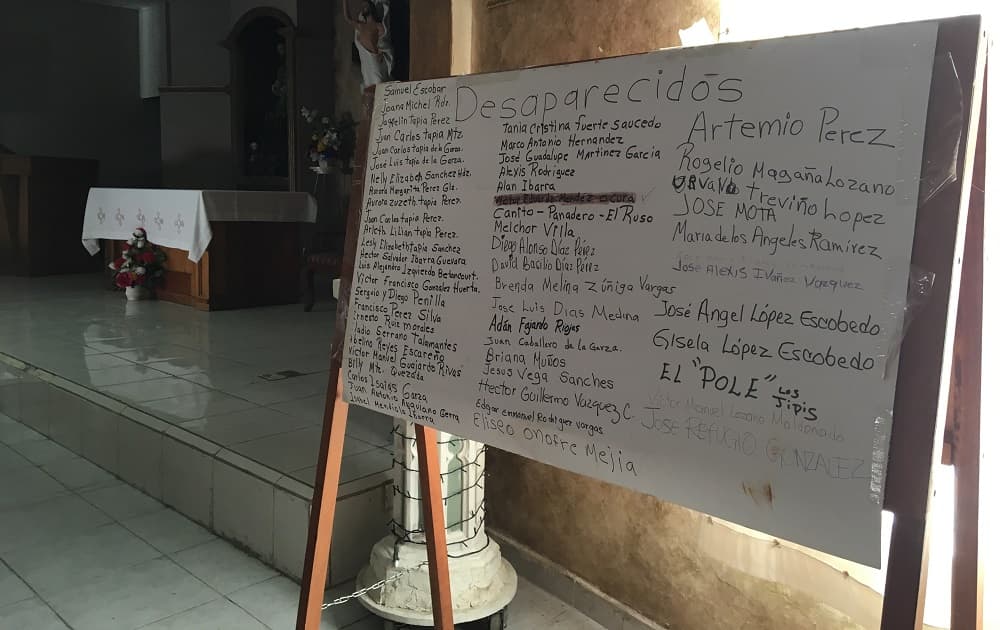 Desaparecidos
Samuel Escobar
Joana Michel Rdz.
Jaqqelin Tapia Perez
Juan Carlos tapia Mtz.
Juan Carlos tapia de la Garza.
José Luis tapia de la Garza.
Nelly Elizabeth Sanchez Hdz.
Aurora Margarita Perez Glz.
Aurora zuzeth tapia Perez.
Juan Carlos tapia Perez.
Arleth Lilian tapia Perez.
Lesly Elizabeth tapia Sanchez
Hector Salvador Ibarra Guevara
Luis Alejandro Izquierdo Betancourt.
Victor Francisco Gonzales Huerta.
Sergio y Diego Penilla
Francisco Perez Silva
Ernesto Ruiz morales
Serrano Talamantes
Reyes Escareño
Victor Manuel Guajardo Rivas
Billy Mtz. Quezada
Carlos Isaias Garza
Juan Antonio Gerra
Isabel Mendiola Ibarra
Tania Cristina fuerte Saucedo
Marco Antonio Hernandez
José Guadalupe Martinez Garcia
Alexis Rodriguez
Alan Ibarra
Victor Eduardo Mendez o Cura
Canito - Panadero - El Ruso
Melchor Villa
Diego Alonso Díaz Pérez
David Basilio Díaz Pérez
Brenda Melina Zúñiga Vargas
Jose Luis Dias Medina
Adán Fajardo Riojas
Juan Caballero de la Garza.
Briana Muños
Jesus Vega Sanches
Hector Guillermo Vazquez C.
Edgar emmanuel Rodriguez vargas
Eliseo onofre Mejia
Artemio Perez
Rogelio Magana Lozano
treviño Lopez
JOSE MOTA
Maria de los Angeles Ramirez
Jose Alexis Ivañez Vazquez
José Angel López Escobedo
Gisela López Escobedo
EL "POLE" Los Jipis
Victor Manuel Lozano Maldonado
JOSE REFUGIO GONZALEZ